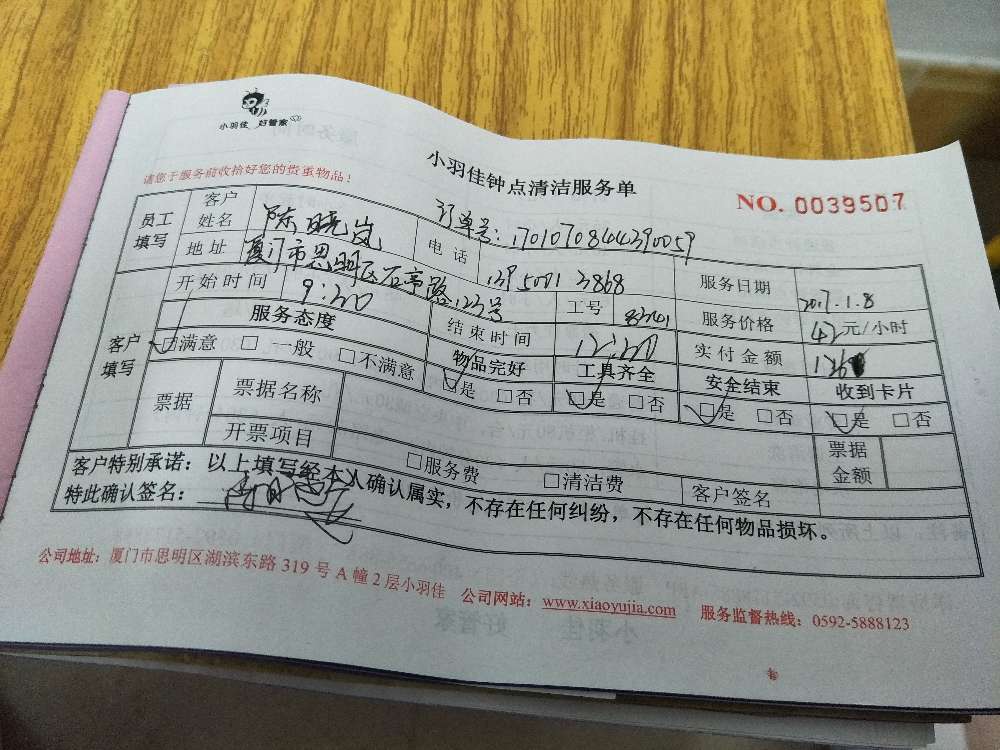 小羽佳 好管家
小羽佳钟点清洁服务单
请您于服务前收拾好您的贵重物品!
NO. 0039507
订单号:1701070844390059
员工填写 客户姓名 陈晓岚 电话 服务日期 2017.1.8
地址 厦门市思明区 路123号 139 5001 3868 工号 服务价格 42元/小时
开始时间 9:30 结束时间 12:30 实付金额 126
客户填写 服务态度 物品完好 工具齐全 安全结束 收到卡片
☑满意 □一般 □不满意 ☑是 □否 ☑是 □否 ☑是 □否 ☑是 □否
票据 票据名称 票据金额
开票项目 □服务费 □清洁费 客户签名
客户特别承诺:以上填写经本人确认属实,不存在任何纠纷,不存在任何物品损坏。
特此确认签名:
公司地址:厦门市思明区湖滨东路 319 号 A 幢 2 层小羽佳 公司网站:www.xiaoyujia.com 服务监督热线:0592-5888123